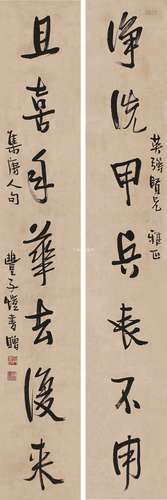 淨洗甲兵長不用
英強賢兄 雅正
且喜年華去復来
集唐人句 豐子愷書贈